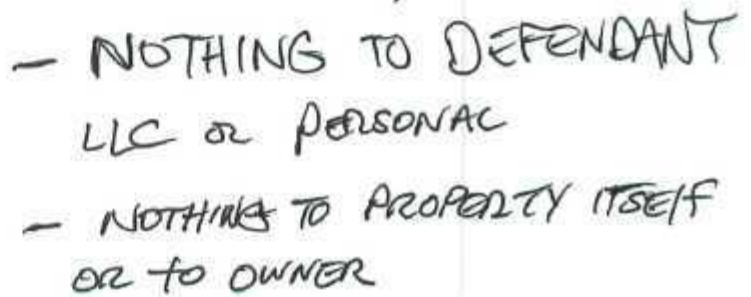 - NOTHING TO DEFENDANT
LLC OR PERSONAL
- NOTHING TO PROPERTY ITSELF
OR TO OWNER